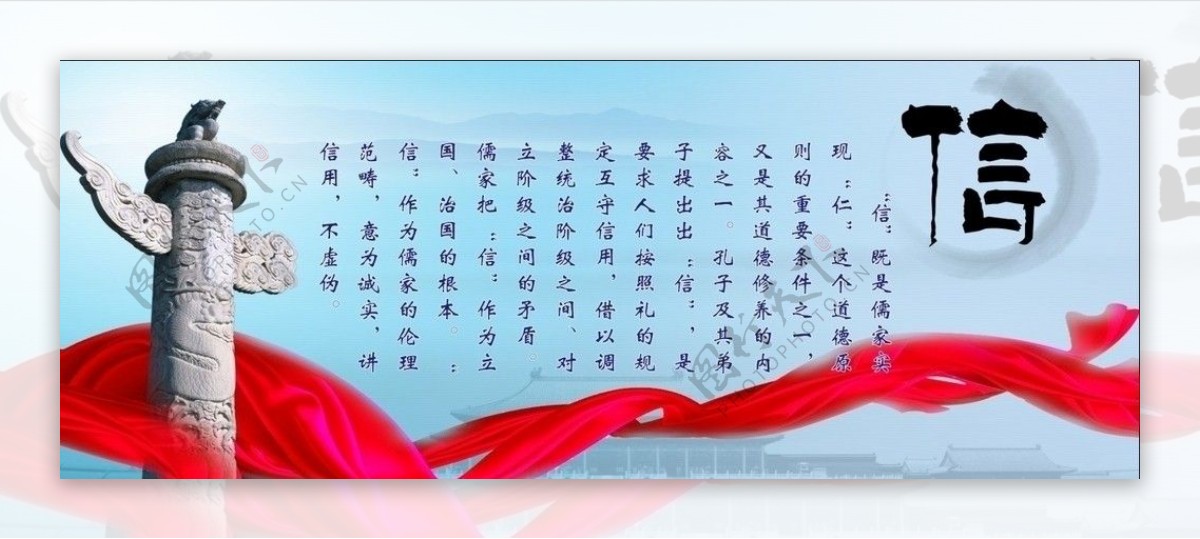 信
：信：既是儒家实
现：仁：这个道德原
则的重要条件之一，
又是其道德修养的内
容之一。孔子及其弟
子提出出：信：，是
要求人们按照礼的规
定互守信用，借以调
整统治阶级之间、对
立阶级之间的矛盾。
儒家把：信：作为立
国、治国的根本。：
信：作为儒家的伦理
范畴，意为诚实，讲
信用，不虚伪。
图行天下
PHOTOPHOTO.CN